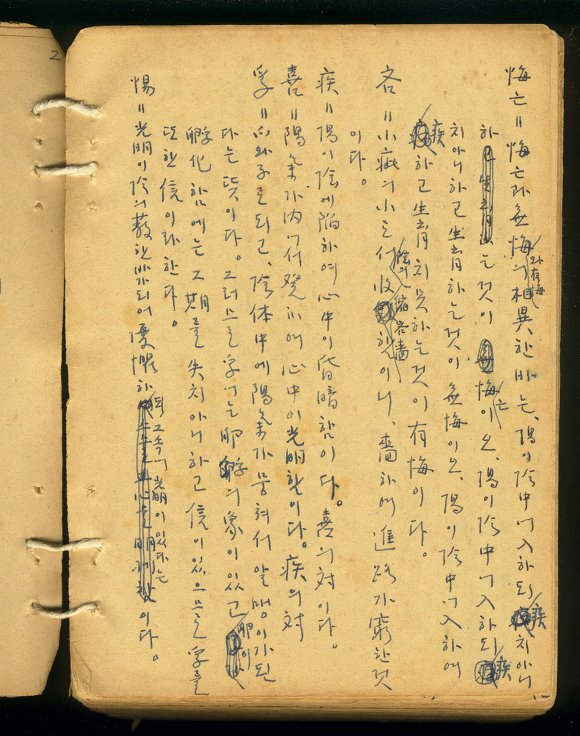 悔亡 = 悔亡과 無悔와 有悔의 相異한 바는、陽이 陰中에 入하되 疾치 아니
하는 것이 悔亡이오、陽이 陰中에 入하되 疾
치 아니하고 生育하는 것이 無悔이오、陽이 陰中에 入하여
疾하고 生育치 못하는 것이 有悔이다。
吝 = 小疵의 小는 陰의 收縮 吝嗇 이니、嗇하여 進路가 窮한 것
이다。
疾 = 陽이 陰에 陷하여 心中이 昏暗함이다。喜의 対이다。
喜 = 陽氣가 内에서 発하여 心中이 光明함이다。疾의 対
孚 = 爪와 子로 되고、陰体中에 陽氣가 뭉쳐서 알맹이가 된
다는 뜻이다。그러므로 孚에는 卵孵의 象이 있고 卵이
孵化함에는 그 期를 失치 아니하고 信이 있으므로 孚를
또한 信이라 한다。
惕 = 光明이 陰의 蔽한 바 되어 憂懼하되 그 속에 光明이 있다는 이다。
2